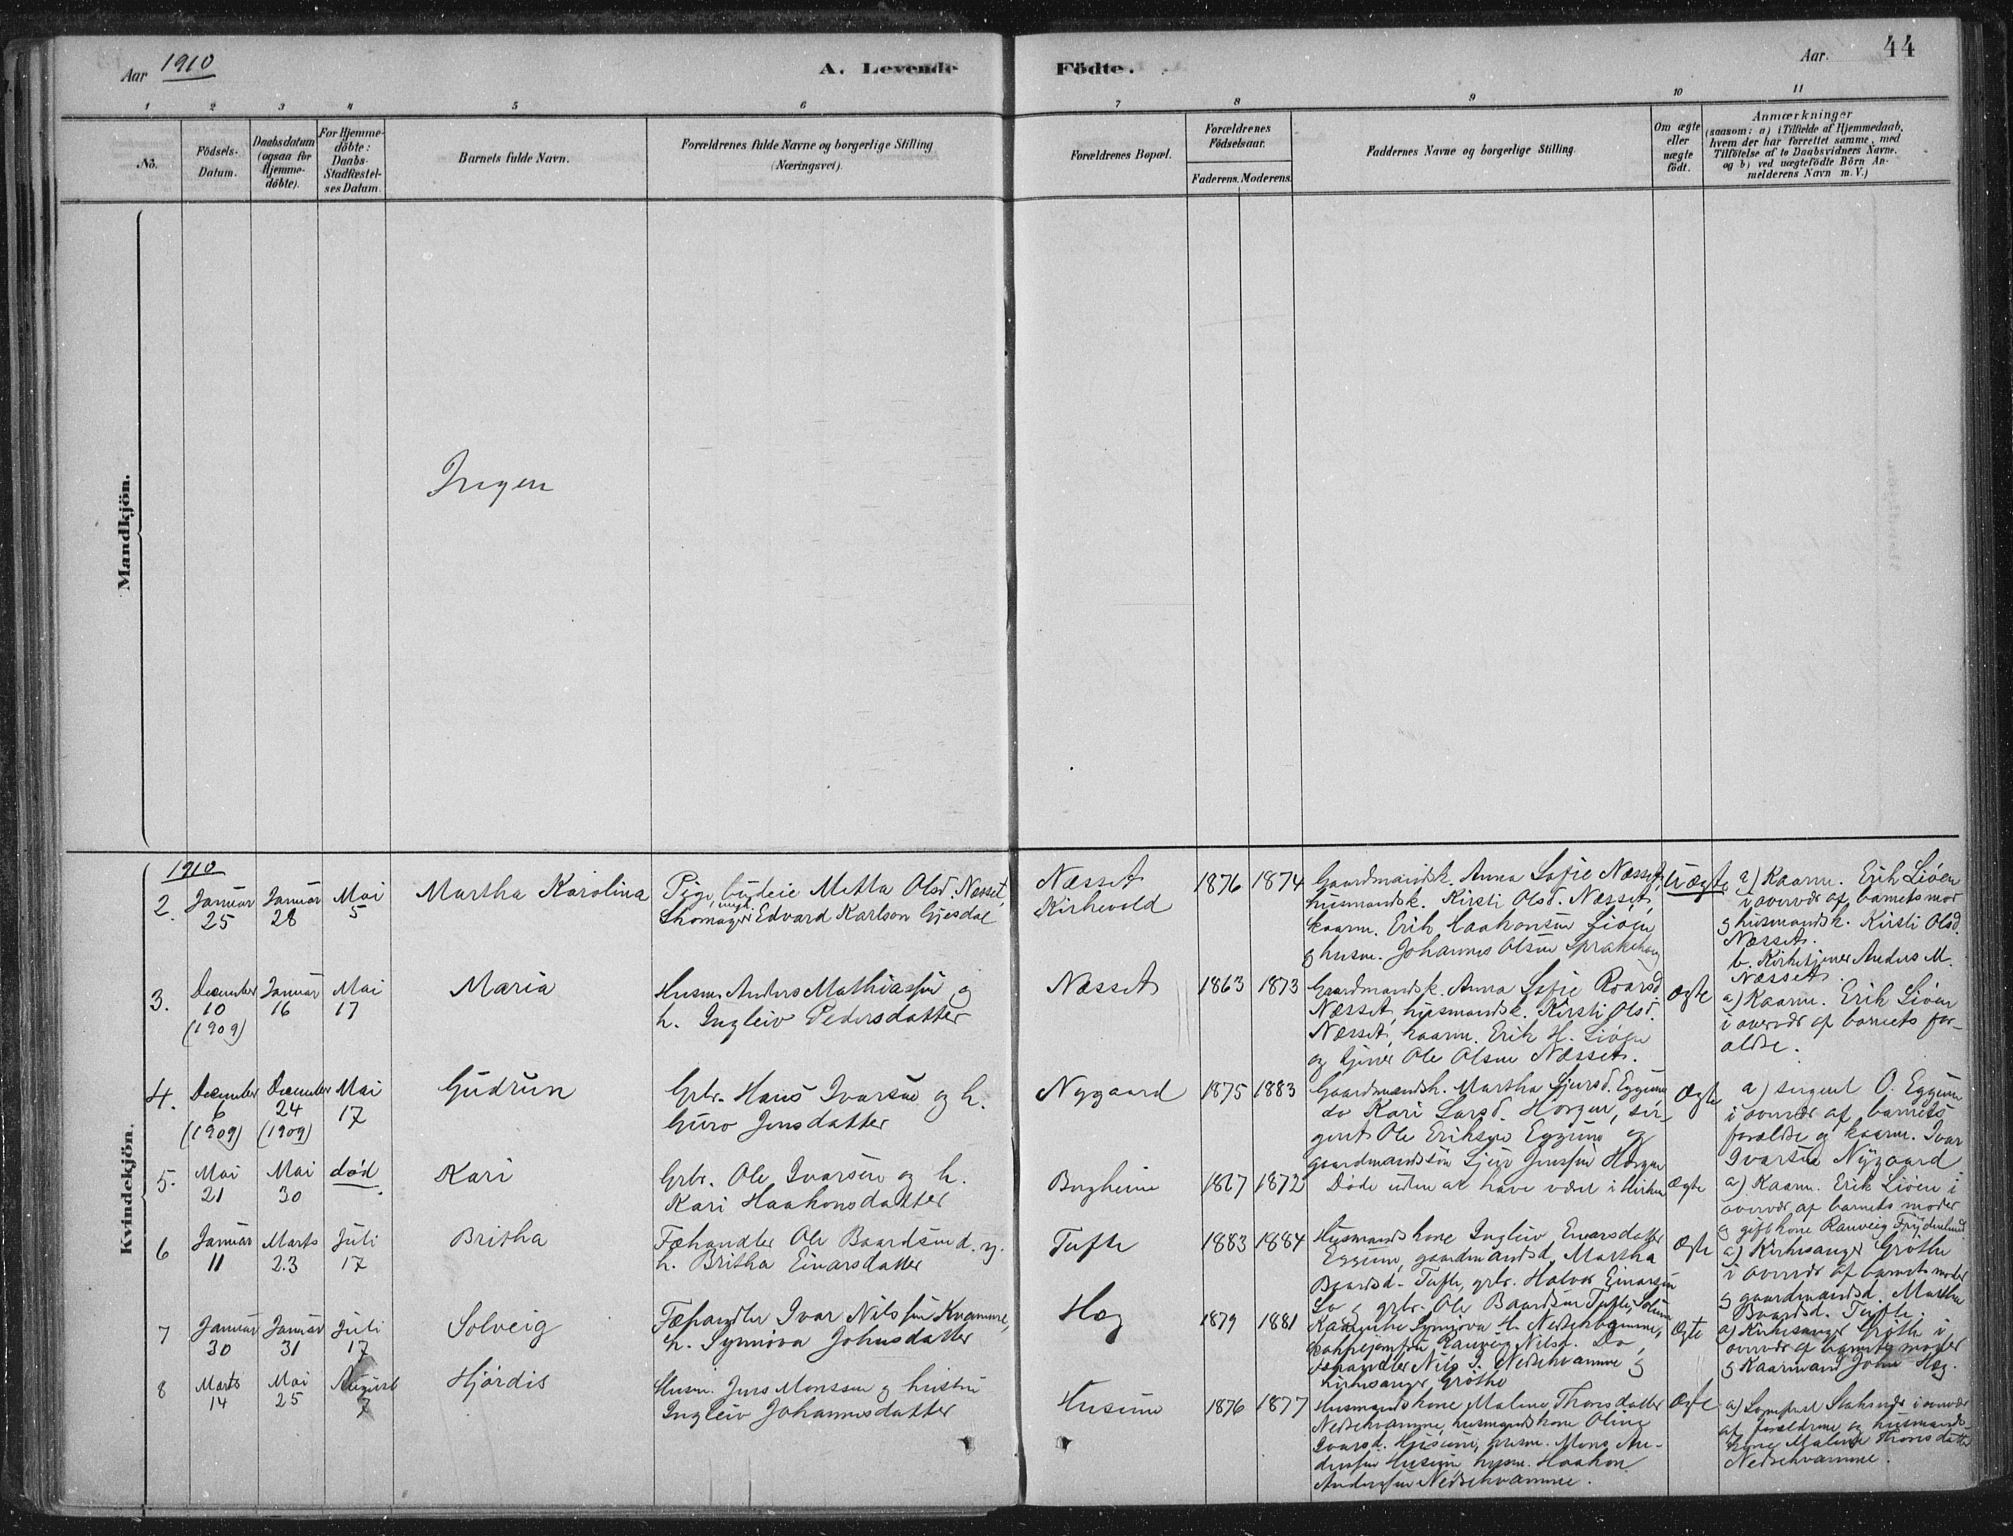 Aar 1910
A. Levende Födte.
Aar.
44
1 2 3 4 5 6 7 8 9 10 11
No.
Födsels-
Datum.
Daabsdatum
(ogsaa for
Hjemme-
döbte).
For Hjemme-
döbte:
Daabs-
Stadfæstel-
ses Datum.
Barnets fulde Navn.
Forældrenes fulde Navne og borgerlige Stilling
(Næringsvei).
Forældrenes Bopæl.
Forældrenes
Födselsaar.
Faderens. Moderens.
Faddernes Navne og borgerlige Stilling.
Om ægte
eller
uægte
födt.
Anmærkninger
(saasom: a) i Tilfælde af Hjemmedaab,
hvem der har forrettet samme, med
Tilföielse af to Daabsvidners Navne.
og b) ved uægtefödte Börn An-
melderens Navn m. V.)
Mandkjön.
Ingen
Kvindekjön.
1910
2.
Januar
25
Januar
28
Mai
5
Martha Karolina
Pige, budeie Metta Olsd. Næsset,
ungk.
Skomager Edvard Karlson Gjesdal
Næsset
Kirkevold
1876
1874
Gaardmandsk. Anna Sofie Næsset,
husmandsk. Kirsti Olsd. Næsset,
kaarm. Erik Haakonsen Liøen
g husm. Johannes Olsen
Uægte
a) Kaarm. Erik Liøen
i overvær af barnets mor
g husmandsk. Kirsti Olsd.
Næsset.
b. Kirketjener Anders M.
Næsset.
3.
December
10
(1909)
Januar
16
Mai
17
Maria
Husm. Anders Mathiassen og
h. Ingleiv Pedersdatter
Næsset
1863
1873
Gaardmandsk. Anna Sofie Roarsd
Næsset, husmandsk. Kirsti Olsd.
Næsset, kaarm. Erik H. Liøen
og tjener Ole Olsen Næsset.
Ægte
a) Kaarm. Erik Liøen
i overvær af barnets for-
ældre.
4.
December
6
(1909)
December
24
(1909)
Mai
17
Gudrun
Grbr. Hans Ivarsen og h.
Guro Jensdatter
Nygaard
1875
1883
Gaardmandsk. Martha Sjursd. Eggum
do Kari Larsd. Horgen, ser-
gent Ole Eriksen Eggum og
gaardmandssøn Sjur Jenssen Horgen
Ægte
a) sergent O. Eggum
i overvær af barnets
forældre og kaarm. Ivar
Ivarsen Nygaard
5.
Mai
21
Mai
30
død
Kari
Grbr. Ole Ivarsen og h.
Kari Haakonsdatter
Borgheim
1867
1872
Døde uden at have været i Kirken
Ægte
a) Kaarm. Erik Liøen i
overvær af barnets moder
g gift kone Ranveig Frydenlund
6
Januar
11
Marts
23
Juli
17
Britha
Fæhandler Ole Baardsen d. y.
h. Britha Einarsdatter
Tufte
1883
1884
Husmandskone Ingleiv Einarsdatter
Eggum, gaardmandsd. Martha
Baardsd. Tufte, grbr. Halvor Einarsen
Lo g grbr. Ole Baardsen Tufte,
Ægte
a) Kirkesanger Grøthe
i overvær af barnets moder
g gaardmandsd. Martha
Baardsd. Tufte.
7
Januar
30
Januar
31
Juli
17
Solveig
Fæhandler Ivar Nilssen Kvamme,
h. Synnøva Johnsdatter
Hæg
1879
1881
Synnøva H. Nedrekvamme,
Ranveig Nilsd. Do,
Fæhandler Nils I. Nedrekvamme g
Kirkesanger Grøthe
Ægte
a) Kirkesanger Grøthe i
overvær af barnets moder
g Kaarmand John Hæg.
8
Marts
14
Mai
25
August
7
Hjørdis
Husm. Jens Monssen g hustru
Ingleiv Johannesdatter
Husum
1876
1877
Husmandskone Malene Thorsdatter
Nedrekvamme, husmandskone Oline
Ivarsd. Husum, husm. Mons An-
derssen Husum husm. Haakon
Anderssen Nedrekvamme.
Ægte
a) Sogneprest i overvær
af forældrene og husmands-
kone Malene Thorsdatter
Nedrekvamme.